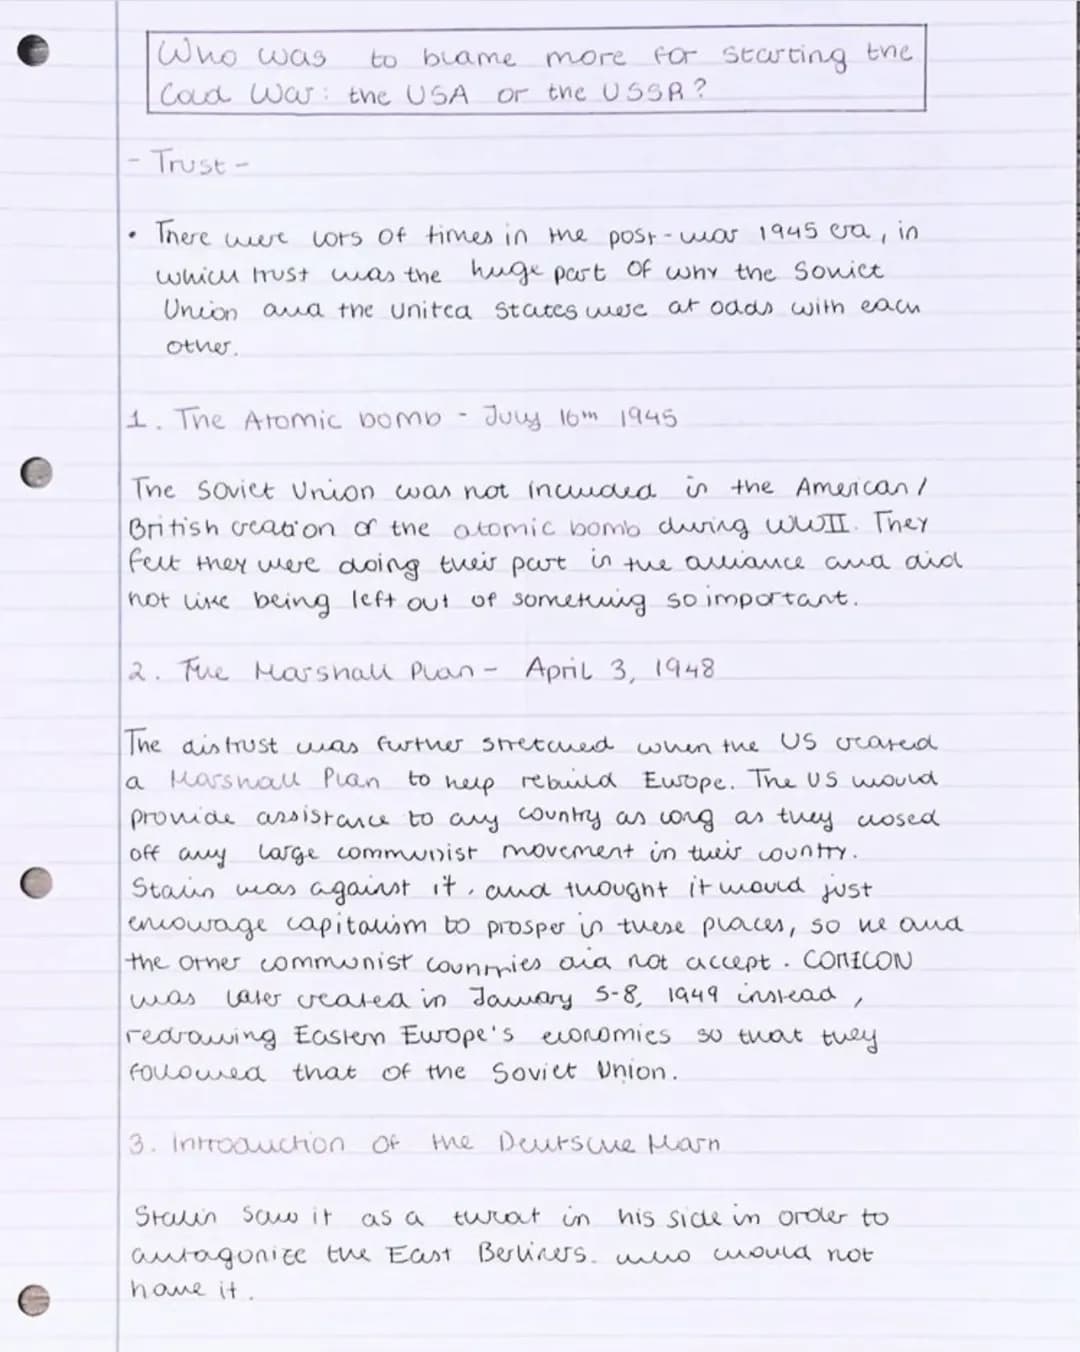 Who was to blame more for starting the
Cold War: the USA or the USSR?
- Trust -
• There were lots of times in the post-war 1945 era, in
which trust was the huge part of why the Soviet
Union and the United States were at odds with each
other.
1. The Atomic bomb - July 16th 1945
The Soviet Union was not included in the American/
British creation of the atomic bomb during WWII. They
felt they were doing their part in the alliance and did
not like being left out of something so important.
2. The Marshall Plan - April 3, 1948
The distrust was further stretched when the US created
a Marshall Plan to help rebuild Europe. The US would
provide assistance to any country as long as they closed
off any large communist movement in their country.
Stalin was against it, and thought it would just
encourage capitalism to prosper in these places, so he and
the other communist countries did not accept. COMICON
was later created in January 5-8, 1949 instead,
redrawing Eastern Europe's economies so that they
followed that of the Soviet Union.
3. Introduction of the Deutsche Mark
Stalin saw it as a threat in his side in order to
antagonize the East Berliners. who would not
have it.